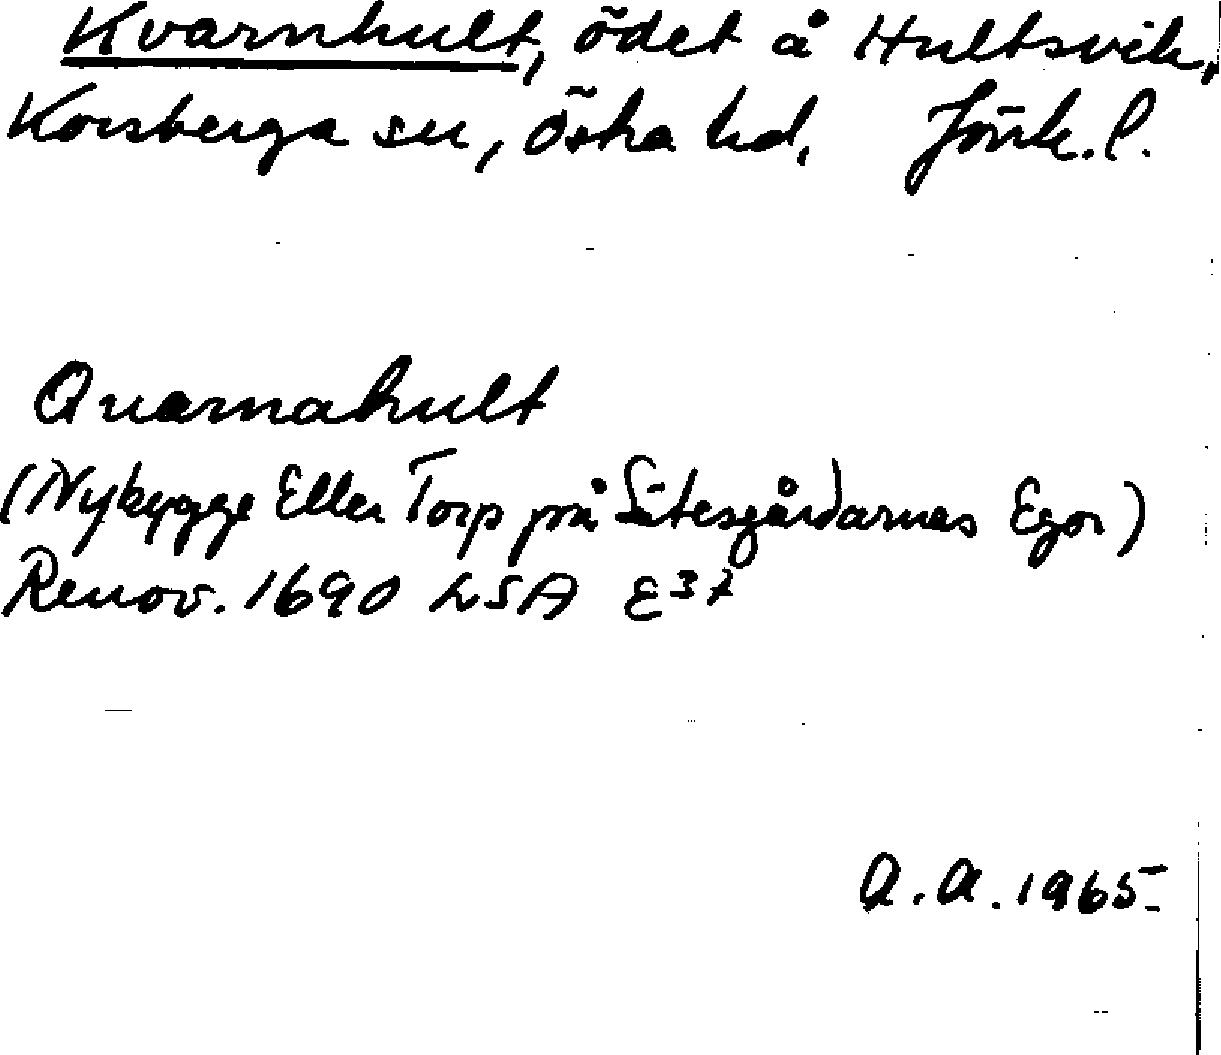 Kvarnhult, ödet å Hultsvik,
Korsberga sn, Östra hd, Jönk. l.
Quarnahult
(Nybygge Eller Torp på Sätesgårdarnas Egor)
Renov. 1690 LSA E37
A. A. 1965